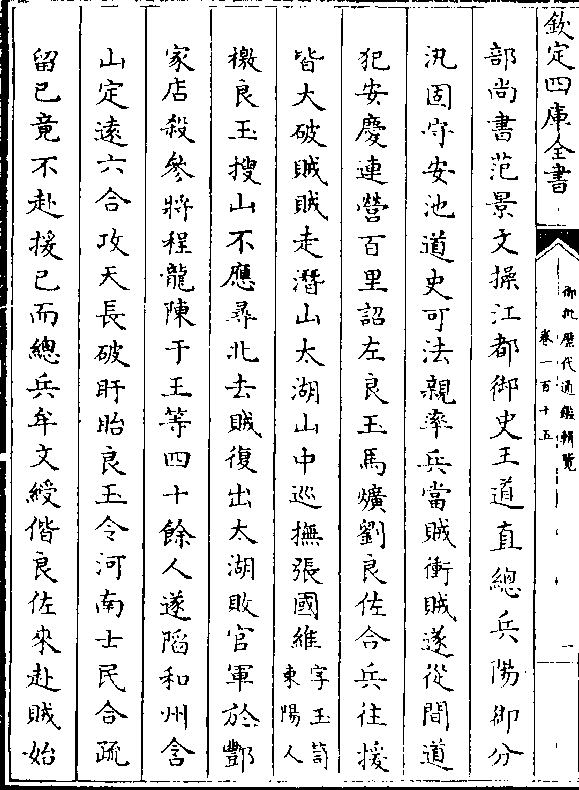 欽定四庫全書
御批歷代通鑑輯覽
卷一百十五
部尚書范景文操江都御史王道直總兵陽御分
汛固守安池道史可法親率兵當賊衝賊遂從間道
犯安慶連營百里詔左良玉馬爌劉良佐合兵往援
皆大破賊賊走潛山太湖山中巡撫張國維字玉笥東陽人
檄良玉搜山不應尋北去賊復出太湖敗官軍於酆
家店殺參將程龍陳于王等四十餘人遂陷和州含
山定遠六合攻天長破盱眙良玉令河南士民合疏
留已竟不赴援已而總兵牟文綬偕良佐來赴賊始